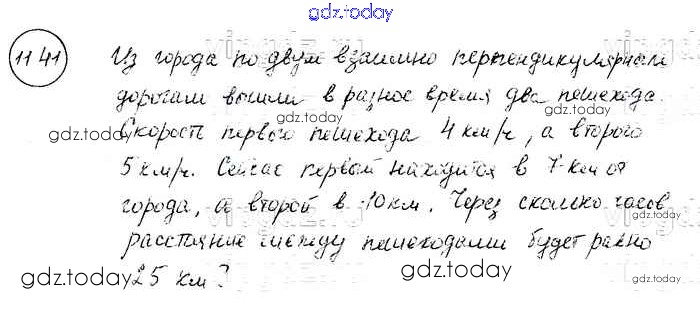 gdz.today
1141 Из города по двум взаимно перпендикулярным
дорогам вышли в разное время два пешехода.
gdz.today
gdz.today
Скорость первого пешехода 4 км/ч, а второго
gdz.today
5 км/ч. Сейчас первый находится в 7 км от
gdz.today
города, а второй в 10 км. Через сколько часов
gdz.today
расстояние между пешеходами будет равно
gdz.today
gdz.today
25 км?
gdz.today